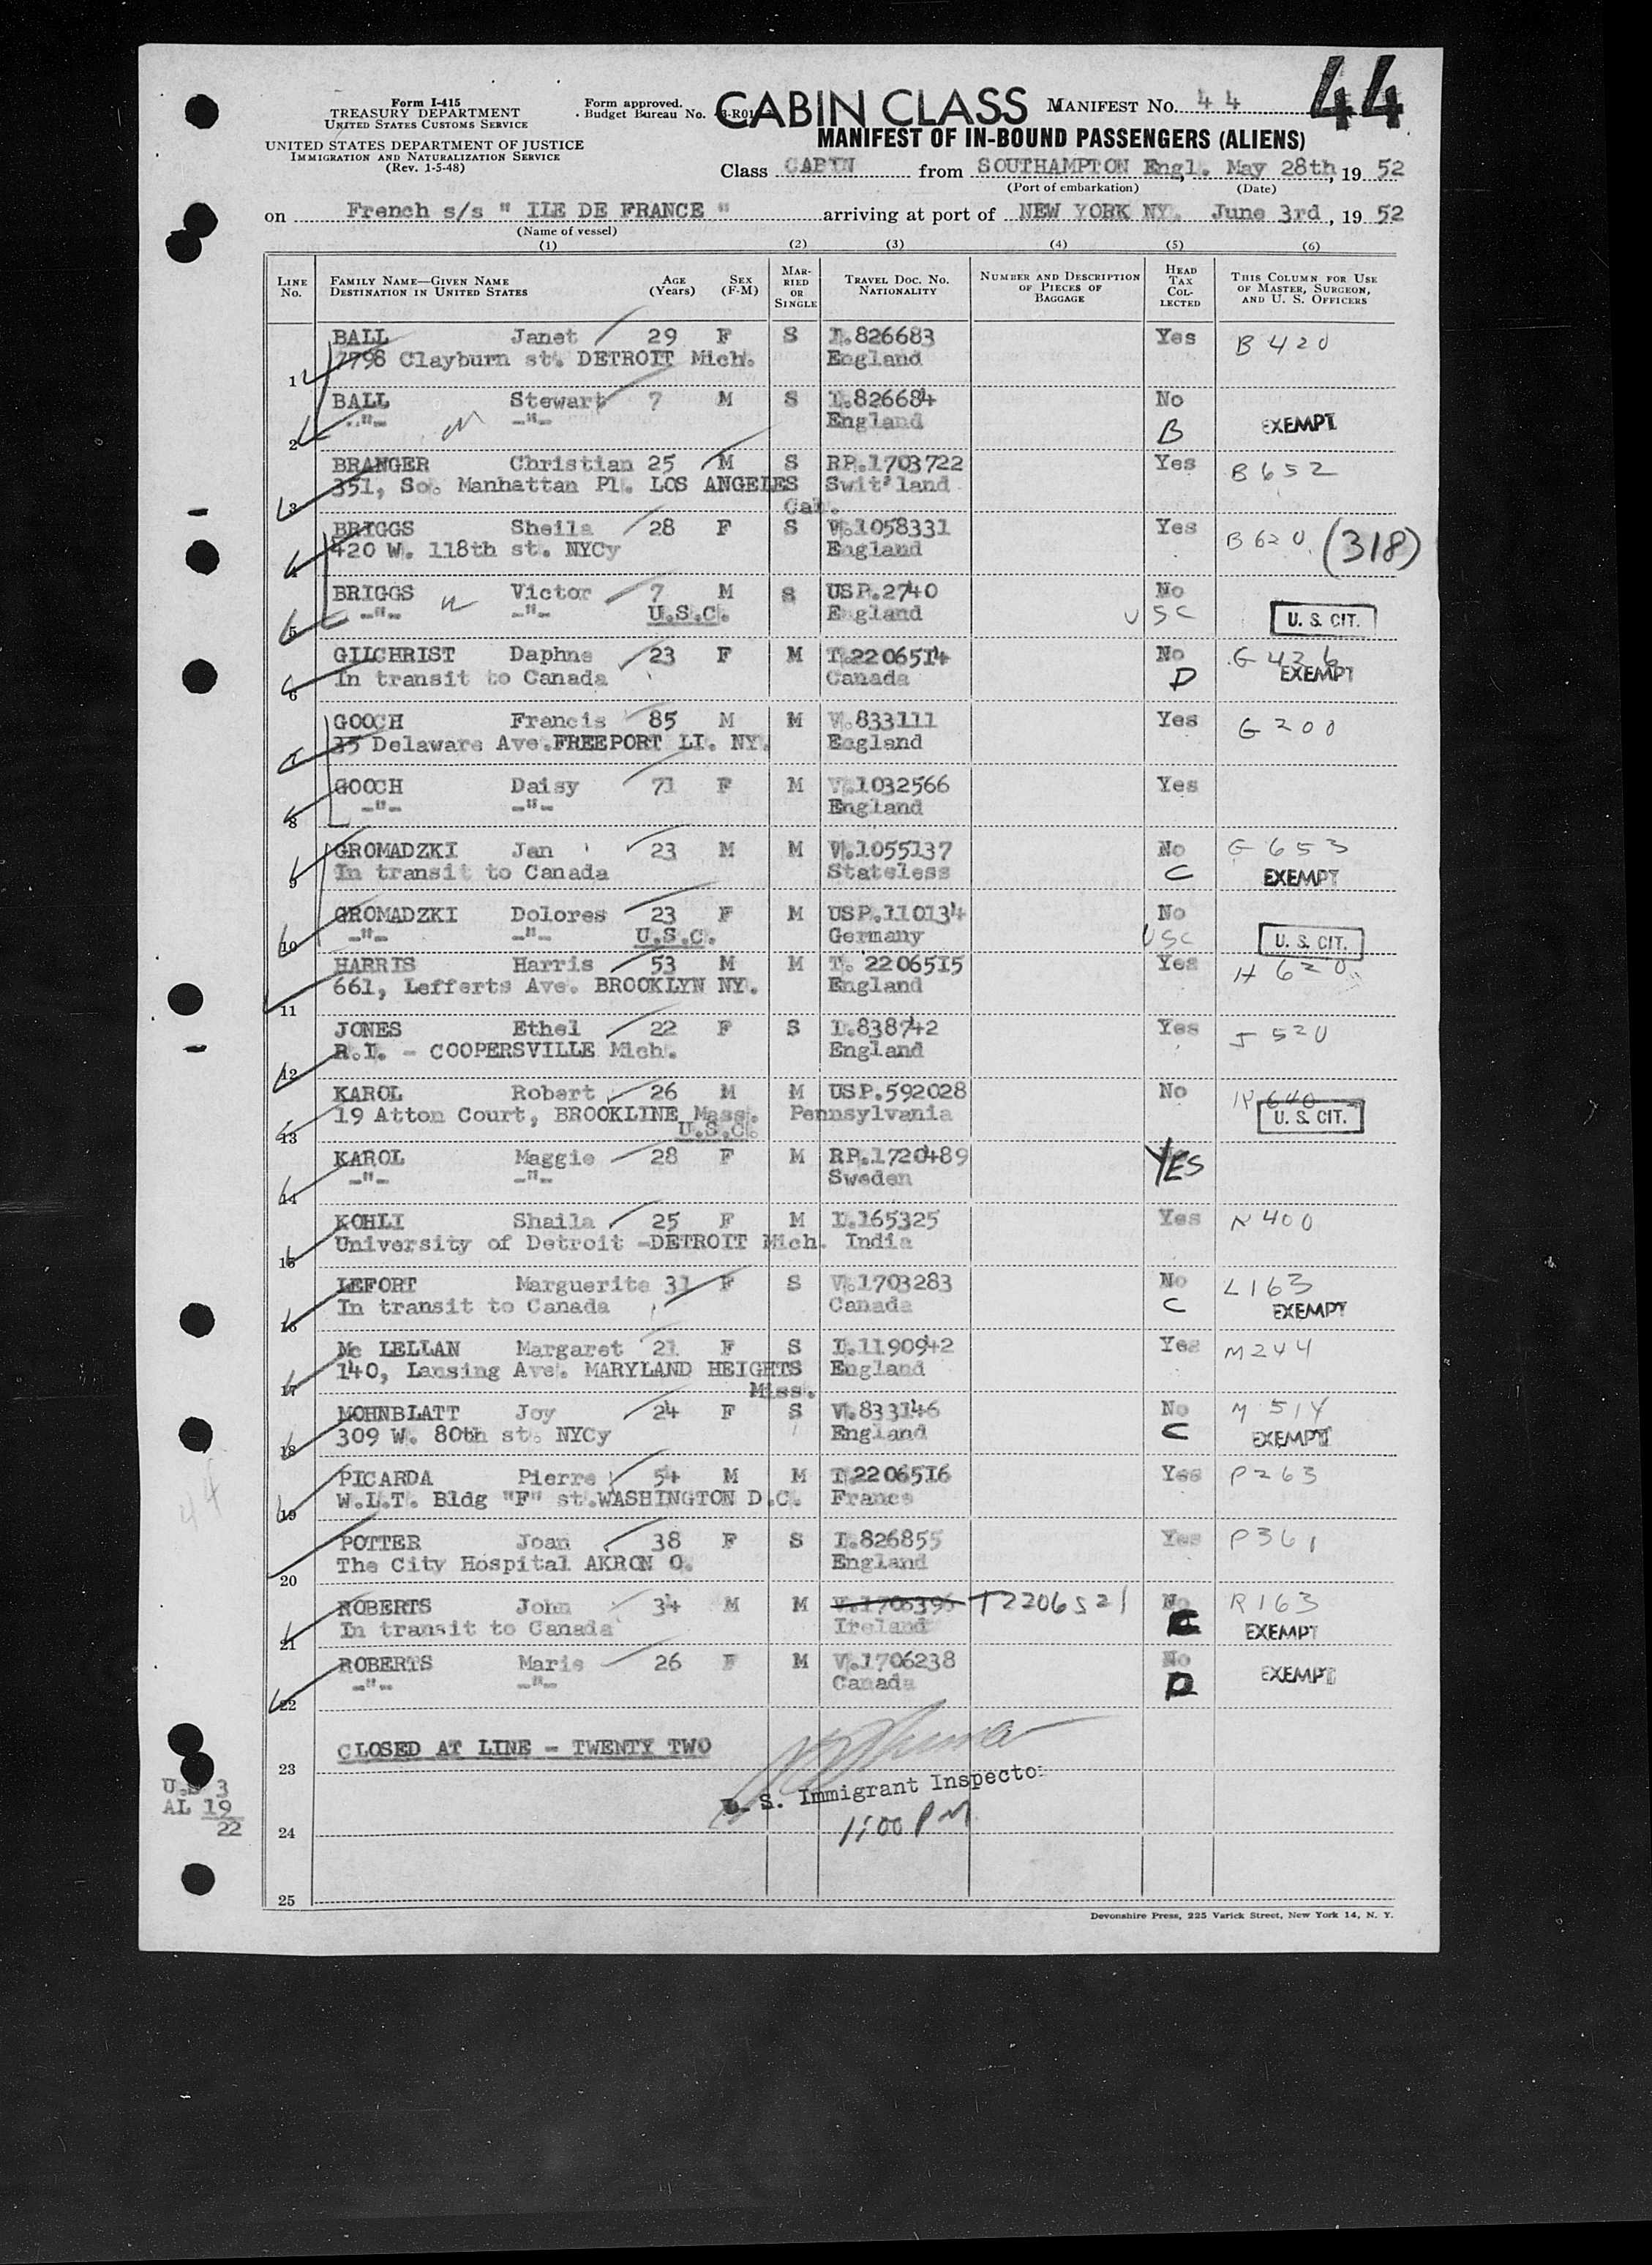 44
Form I-415
TREASURY DEPARTMENT
UNITED STATES CUSTOMS SERVICE
UNITED STATES DEPARTMENT OF JUSTICE
IMMIGRATION AND NATURALIZATION SERVICE
(Rev. 1-5-48)
Form approved.
Budget Bureau No.
CABIN CLASS MANIFEST No. 44
MANIFEST OF IN-BOUND PASSENGERS (ALIENS)
Class CABIN from SOUTHAMPTON Engl. May 28th, 19 52
(Port of embarkation) (Date)
on French s/s " ILE DE FRANCE " arriving at port of NEW YORK NY. June 3rd, 19 52
(Name of vessel)
(1) (2) (3) (4) (5) (6)
LINE No. FAMILY NAME—GIVEN NAME DESTINATION IN UNITED STATES AGE (Years) SEX (F-M) MARRIED OR SINGLE TRAVEL DOC. NO. NATIONALITY NUMBER AND DESCRIPTION OF PIECES OF BAGGAGE HEAD TAX COLLECTED THIS COLUMN FOR USE OF MASTER, SURGEON, AND U. S. OFFICERS
BALL Janet 29 F S I.826683 Yes B 420
1 7798 Clayburn st. DETROIT Mich. England
BALL Stewart 7 M S I.826684 No
2 -"- -"- England B EXEMPT
BRANGER Christian 25 M S RP.1703722 Yes B 652
3 351, So. Manhattan Pl. LOS ANGELES Swit'land
Cal.
BRIGGS Sheila 28 F S V.1058331 Yes B 620 (318)
4 420 W. 118th st. NYCy England
BRIGGS Victor 7 M S USP.2740 No
5 -"- -"- U.S.C. England USC U. S. CIT.
GILCHRIST Daphne 23 F M T.2206514 No G 426
6 In transit to Canada Canada D EXEMPT
GOOCH Francis 85 M M V.833111 Yes G 200
7 35 Delaware Ave.FREEPORT LI. NY. England
GOOCH Daisy 71 F M V.1032566 Yes
8 -"- -"- England
GROMADZKI Jan 23 M M V.1055137 No G 653
9 In transit to Canada Stateless C EXEMPT
GROMADZKI Dolores 23 F M USP.110134 No
10 -"- -"- U.S.C. Germany USC U. S. CIT.
HARRIS Harris 53 M M T. 2206515 Yes H 620
11 661, Lefferts Ave. BROOKLYN NY. England
JONES Ethel 22 F S I.838742 Yes J 520
12 R.I. - COOPERSVILLE Mich. England
KAROL Robert 26 M M USP.592028 No K 640
13 19 Atton Court, BROOKLINE Mass. Pennsylvania U. S. CIT.
U.S.C.
KAROL Maggie 28 F M RP.1720489 YES
14 -"- -"- Sweden
KOHLI Shaila 25 F M I.165325 Yes K 400
15 University of Detroit -DETROIT Mich. India
LEFORT Marguerite 31 F S V.1703283 No L163
16 In transit to Canada Canada C EXEMPT
Mc LELLAN Margaret 21 F S I.1190942 Yes M244
17 140, Lansing Ave. MARYLAND HEIGHTS England
Miss.
MOHNBLATT Joy 24 F S V.833146 No M 514
18 309 W. 80th st. NYCy England C EXEMPT
PICARDA Pierre 54 M M T.2206516 Yes P263
19 W.L.T. Bldg "F" st.WASHINGTON D.C. France
POTTER Joan 38 F S I.826855 Yes P361
20 The City Hospital AKRON O. England
ROBERTS John 34 M M V.1706396 T2206521 No R163
21 In transit to Canada Ireland C EXEMPT
ROBERTS Marie 26 F M V.1706238 No
22 -"- -"- Canada D EXEMPT
23 CLOSED AT LINE - TWENTY TWO
U. S. Immigrant Inspector
1:00 PM
U.S 3
AL 19
22
24
25
44
Devonshire Press, 225 Varick Street, New York 14, N. Y.